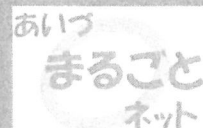 あいづ
まるごと
ネット